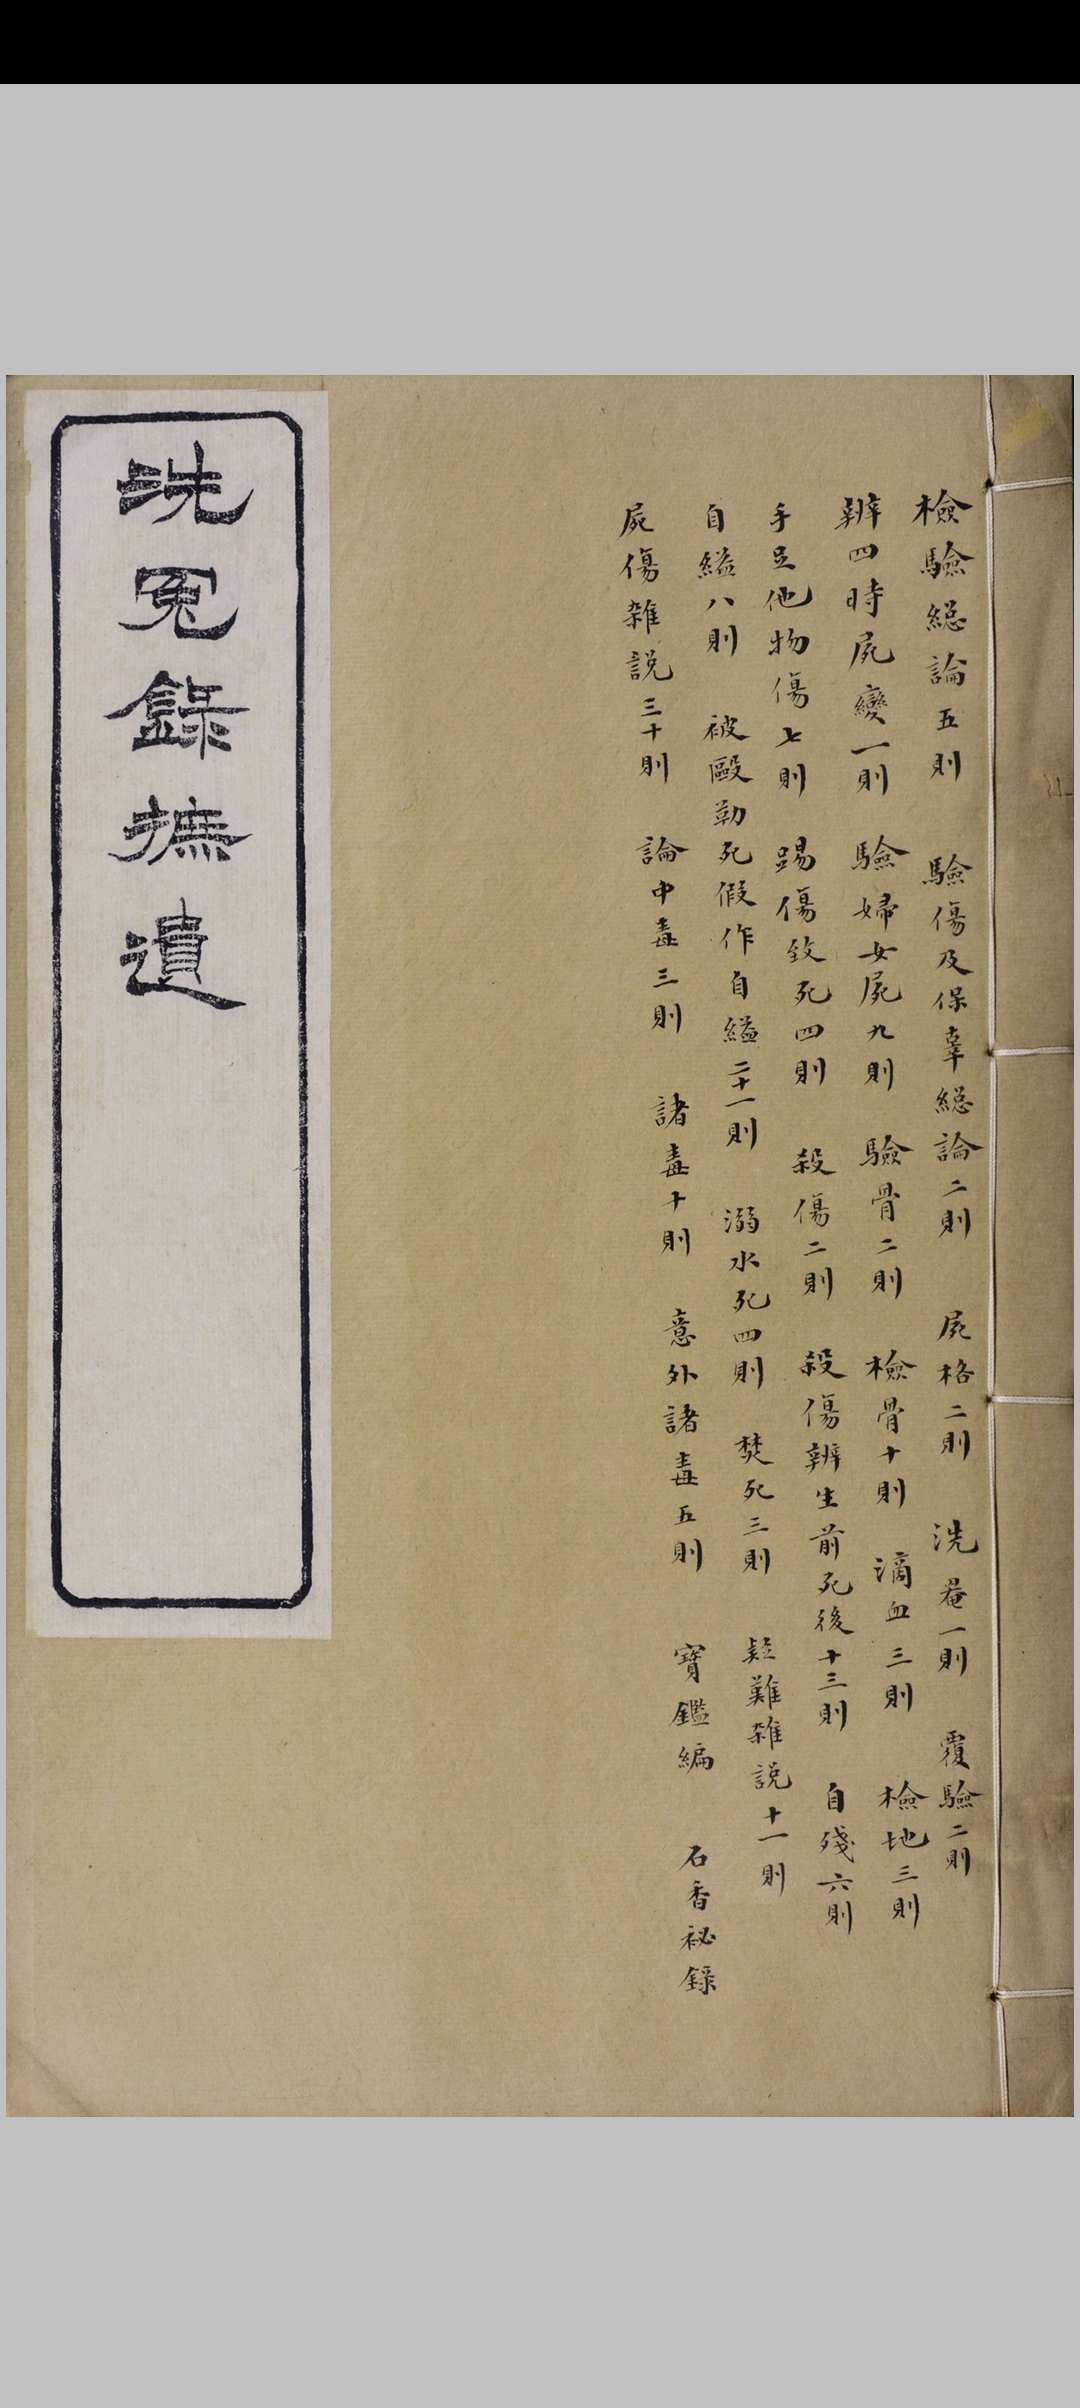 檢驗總論五則 驗傷及保辜總論二則 屍格二則 洗罨一則 覆驗二則
辨四時屍變一則 驗婦女屍九則 驗骨二則 檢骨十則 滴血三則 檢地三則
手足他物傷七則 踢傷致死四則 殺傷二則 殺傷辨生前死後十三則 自殘六則
自縊八則 被毆勒死假作自縊二十一則 溺水死四則 焚死三則 疑難雜說十一則
屍傷雜說三十則 論中毒三則 諸毒十則 意外諸毒五則 寶鑑編 石香秘錄
洗冤錄摭遺